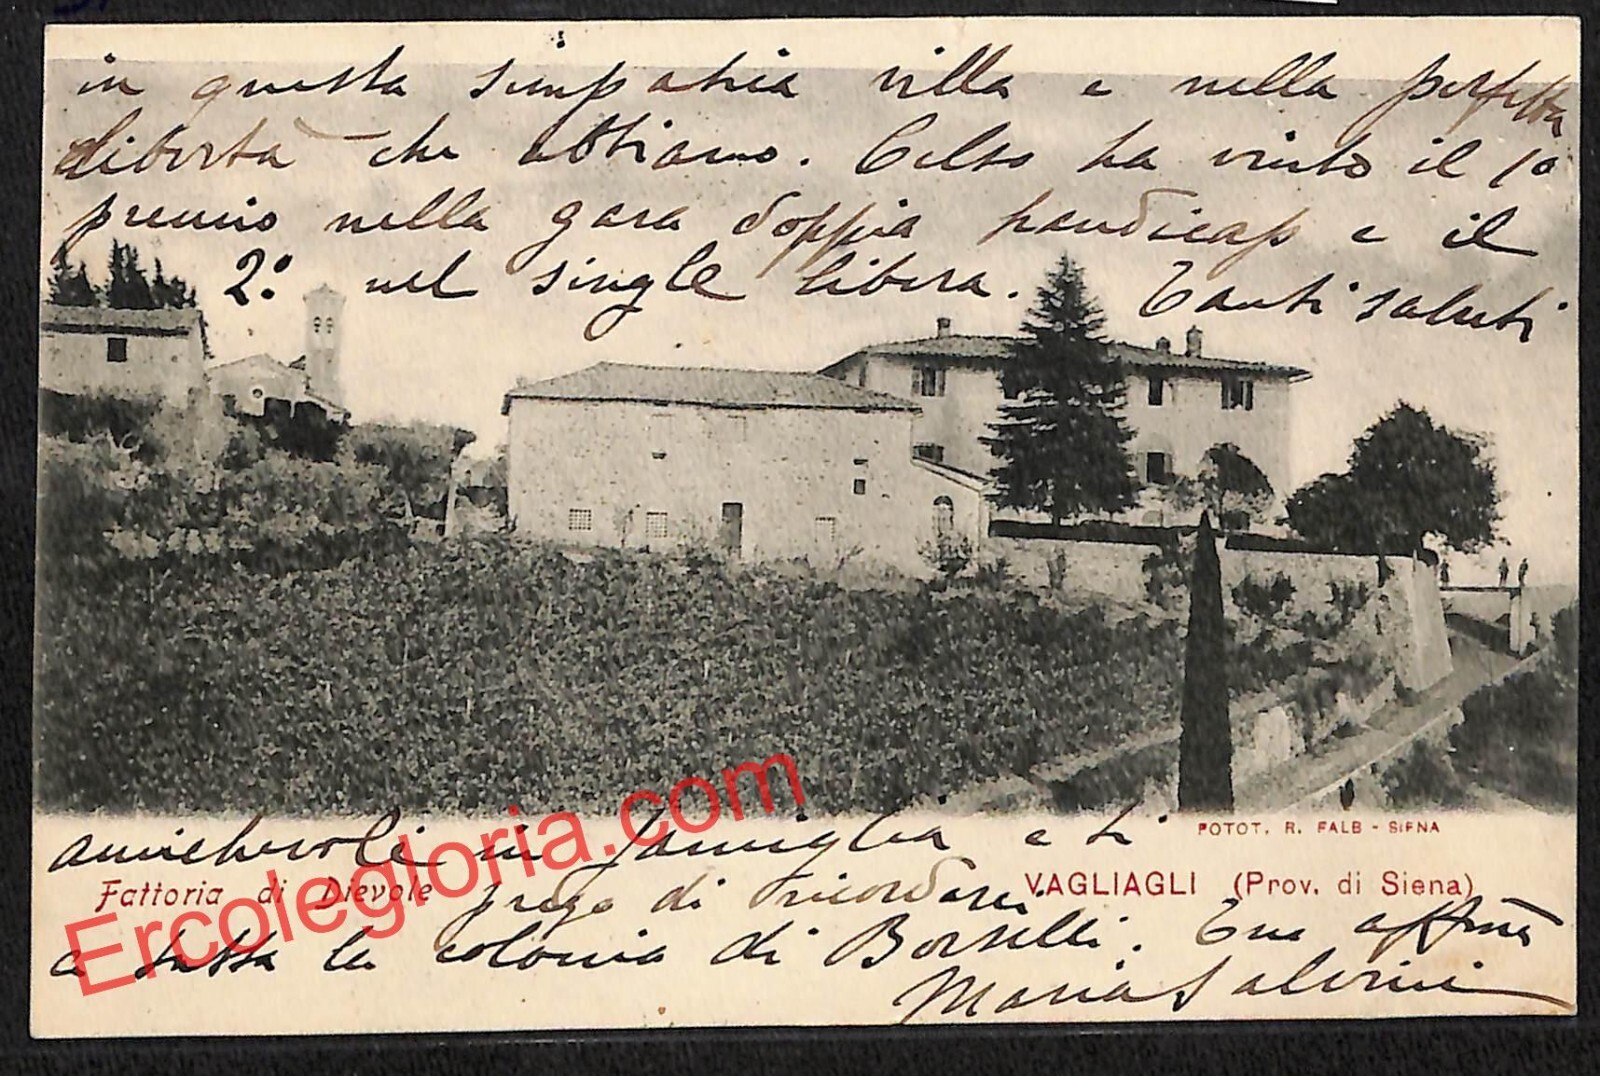 in questa simpatica villa e nella perfetta
libertà che abbiamo. Celso ha vinto il 1º
premio nella gara doppia handicap e il
2º nel single libera. Tanti saluti
amichevoli in famiglia e ti
FOTOT. R. FALB - SIENA
Fattoria di Dievole
VAGLIAGLI (Prov. di Siena)
prego di ricordarci
a tutta la colonia di Borselli. Tua affma
Maria Salvini
Ercolegloria.com